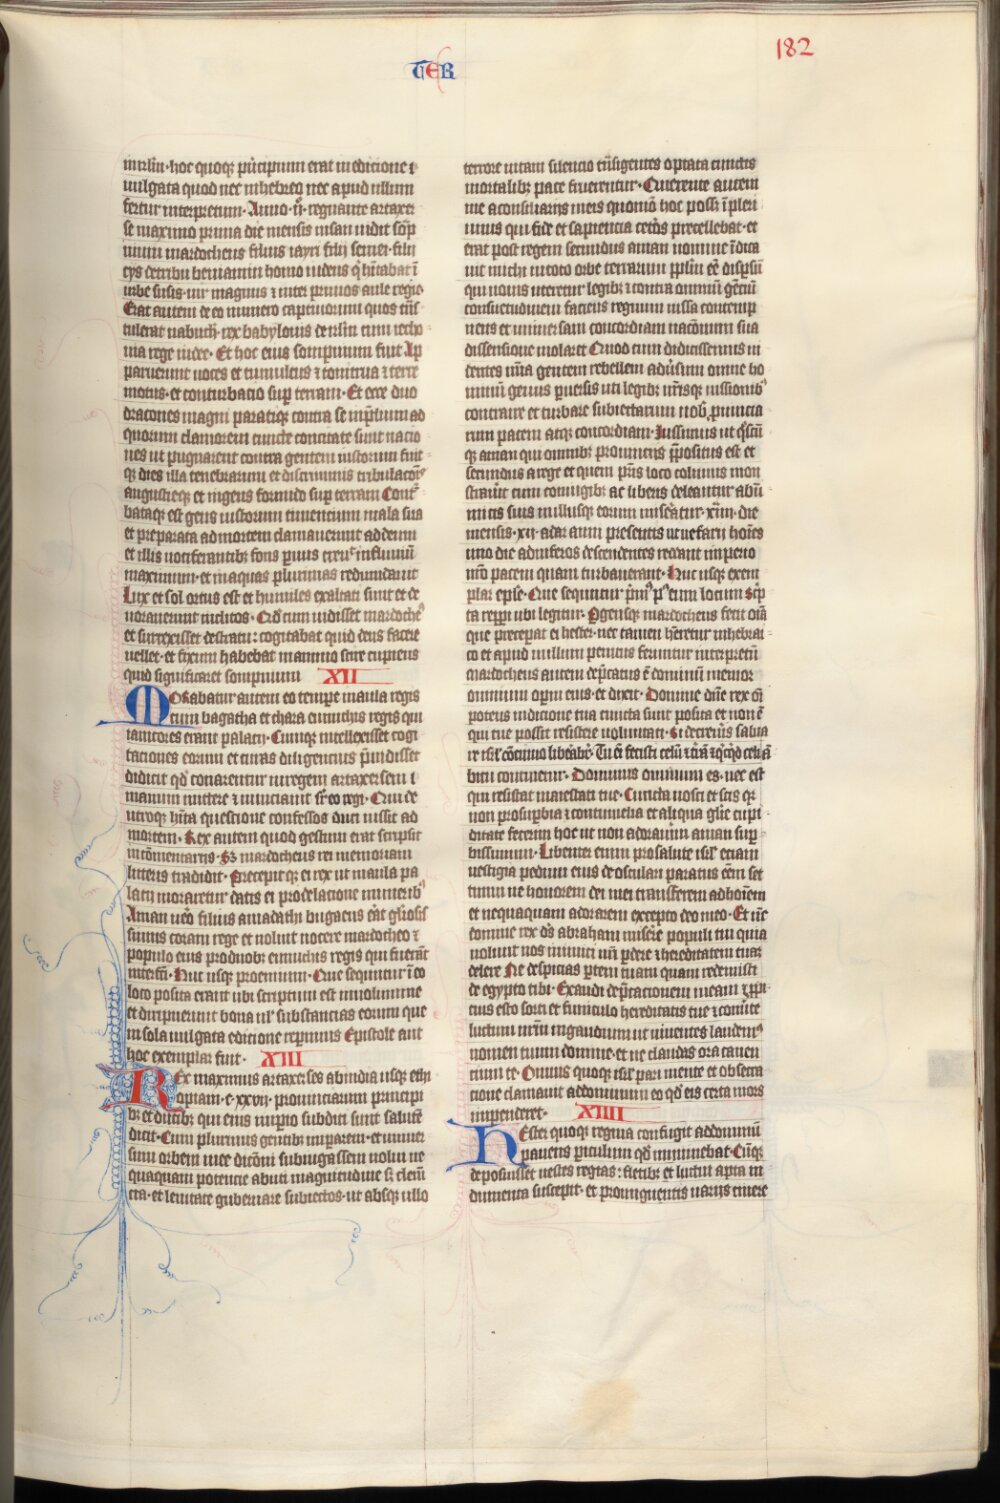 TER
182
irl̄m·hoc quoqꝫ pͥncipium erat in edicione ī
uulgata quod nec in hebreo nec apud ullum
fertur interpretum· Anno·ij·regnante artaxer
se maximo prima die mensis nisan uidit sōp
nium mardocheus filius iayri filij semei·filij
cys de tribu beniamin homo iudeus q̇ hītabat ī
urbe susis·uir magnus ⁊ inter primos aule regie·
Erat autem de eo numero captiuorum quos tn̄s
tulerat nabuch·rex babylonis de irl̄m cum iecho
nia rege iude· Et hoc eius sompnium fuit Ap
paruerunt uoces et tumultus ⁊ tonitrua ⁊ terre
motus·et conturbacio sup̱ terram· Et ecce duo
dracones magni paratiqꝫ contra se in p̱lium ad
quorum clamorem cuncte concitate sunt nacio
nes ut pugnarent contra gentem iustorum fuit
qꝫ dies illa tenebrarum et discriminis tribulacōis
angustieqꝫ et ingens formido sup̱ terram Cont͛
bataqꝫ est gens iustorum timentium mala sua
et preparata ad mortem clamauerunt ad deum
et illis uociferantibꝫ fons p̱uus creuͥt in fluuiū
maximum·et in aquas plurimas redundauit
Lux et sol ortus est et humiles exaltati sunt et de
uorauerunt inclitos· Qd̄ cum uidisset mardocheꝰ
et surrexisset de stratu: cogitabat quid deus facere
uellet·et fixum habebat in animo scire cupiens
quid significaret sompnium XII
Morabatur autem eo tempe in aula regis
cum bagatha et thara eunuchis regis qui
ianitores erant palacij· Cumqꝫ intellexisset cogi
taciones eorum et curas diligencius p̱uidisset
didicit qd̄ conarentur in regem artaxersem ī
manum mittere ⁊ nunciauit sr̄ eo regi· Qui de
utroqꝫ hīta questione confessos duci iussit ad
mortem· Rex autem quod gestum erat scripsit
in cōmentarijs· Sꝫ mardocheus rei memoriam
litteris tradidit· Precepit qꝫ ei rex ut in aula pa
lacij moraretur datis ei pro delacione muneribꝰ
Aman uēo filius amadathi bugaeus er̄at gl̄iosis
simus coram rege et noluit nocere mardocheo ⁊
populo eius pro duobꝫ eunuchis regis qui fuerāt
interfc̄i· Huc usqꝫ proemium· Que sequuntur ī eo
loco posita erant ubi scriptum est in uolumine
et diripuerunt bona ul̄ substancias eorum que
in sola uulgata edicione rep̱imus Epistole aut
hoc exemplar fuit· XIII
Rex maximus artaxerses ab india usqꝫ ethi
opiam·c·xxvij· prouinciarum principi
bꝫ et ducibꝫ qui eius imp̱io subditi sunt salutē
dicit· Cum plurimis gentibꝫ imp̱arem·et uniuer
sum orbem mee dicōni subiugassem uolui ne
quaquam potencie abuti magnitudine sꝫ clemē
cia·et lenitate gubernare subiectos·ut absqꝫ ullo
terrore uitam silencio tn̄sigentes optata cunctis
mortalibꝫ pace fruerentur· Querente autem
me a consiliarijs meis quomō hoc poss̄ īpleri
unus qui fide et sapiencia cet̄os precellebat·et
erat post regem secundus aman nomine ī̄dica
uit michi in toto orbe terrarum pplm̄ eē disp̱sū
qui nouis uteretur legibꝫ ⁊ contra omniū gēciū
consuetudinem faciens regnum iussa contemp
neret et uniuersam concordiam nacōnum sua
dissensione uiolaret Quod cum didicissemus ui
dentes unā gentem rebellem adūsum omne ho
minū genus p̱uersis uti legibꝫ nr̄isqꝫ iussionibꝰ
contraire et turbare subiectarum nob̄ ꝓuincia
rum pacem atqꝫ concordiam· Iussimus ut qͥscū
qꝫ aman qui omnibꝫ prouincijs p̄positus est et
secundus a rege et quem pr̄is loco colimus mon
strauit cum coniugibꝫ ac liberis deleantur ab in̄i
micis suis nullusqꝫ eorum mis̄eatur·xiiij·die
mensis·xij·adar anni presentis ut nefarij hoīes
uno die ad inferos descendentes reddant imperio
nr̄o pacem quam turbauerant· Huc usqꝫ exem
plar epl̄e· Que sequuntur p̱ꝰ eum locum sc̄p
ta rep̱i ubi legitur· Pgensqꝫ mardocheus fecit oīa
que precep̱at ei hester·nec tamen hn̄etur in hebrai
co et apud nullum penitus feruntur interpretū
Mardocheus autem dep̄catus ē dominū memor
omnium op̱um eius·et dixit· Domine dn̄e rex oī
potens in dicione tua cuncta sunt posita et non ē
qui tue possit resistere uoluntati· Si decreu͛is salua
re isrl̄ cōtinuo libēab̄· Tu ei̅ fecisti celū ⁊ t͛rā ⁊ qͥcqͥd celi ā
bitu continetur· Dominus omnium es·nec est
qui resistat maiestati tue· Cuncta nosti et scis qꝫ
non pro sup̱bia ⁊ contumelia et aliqua glīe cupi
ditate fecerim hoc ut non adorarem aman sup̱
bissimum· Libenter enim pro salute isrl̄ eciam
uestigia pedum eius deosculari paratus eēm set
timui ne honorem dei mei transferrem ad hoīem
et nequaquam adorarem excepto deo meo· Et nūc
domine rex ds̄ abraham misere populi tui quia
uolunt nos inimici nr̄i p̱dere ⁊ hereditatem tuaꝫ
delere Ne despicias p̱tem tuam quam redemisti
de egypto tibi· Exaudi dep̄cacionem meam ⁊ ꝓpi
cius esto sorti et funiculo hereditatis tue ⁊ cōu͛te
luctum nr̄m in gaudium ut uiuentes laudemꝰ
nomen tuum domine·et ne claudas ora canen
cium te· Omnis quoqꝫ isrl̄ pari mente et obsecra
cione clamauit ad dominum eo qd̄ eis certa mors
impenderet· XIIII
Hester quoqꝫ regina confugit ad dominū
pauens p̱iculum qd̄ imminebat· Cūqꝫ
deposuisset uestes regias: fletibꝫ et luctui apta in
dumenta suscepit·et pro unguentis uarijs cinere